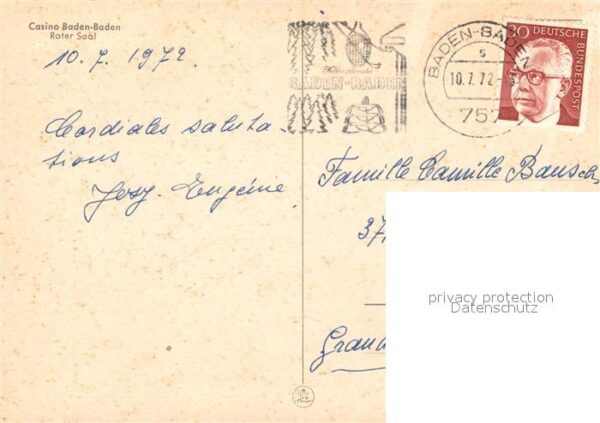 Casino Baden-Baden
Roter Saal
10. 7. 1972
Cordiales saluta-
tions
Josy. Eugénie.
BADEN-BADEN
BADEN-BADEN
s
10.7.72
757
30 DEUTSCHE
BUNDESPOST
Famille Camille Bausch
37,
privacy protection
Datenschutz